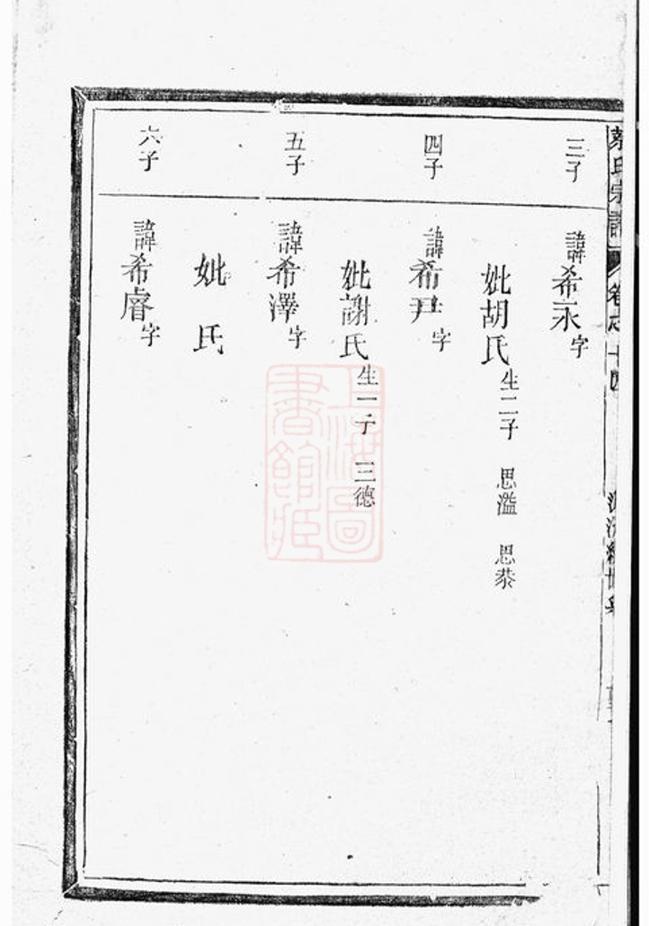 氏宗譜 卷之十四
三子 諱希永字
妣胡氏 生二子 思溢 思恭
四子 諱希尹字
妣謝氏 生一子 三德
五子 諱希澤字
妣 氏
六子 諱希睿字
上海圖
書館藏